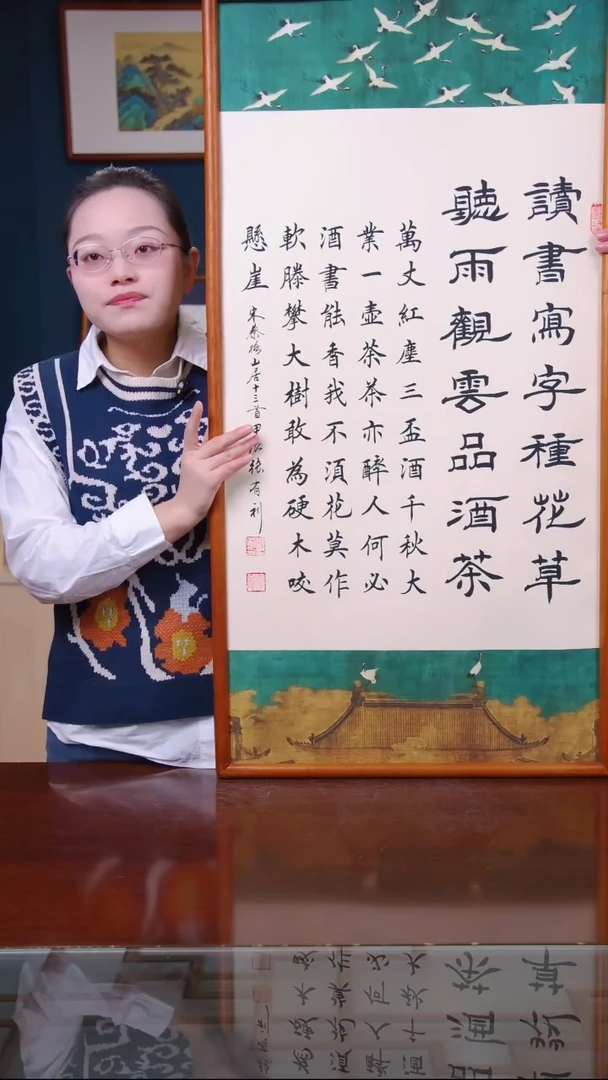 讀書寫字種花草
聽雨觀雲品酒茶
萬丈紅塵三盃酒千秋大
業一壺茶茶亦醉人何必
酒書能香我不湏花莫作
軟滕攀大樹敢為硬木咬
懸崖 宋 山居十三首甲辰張有利